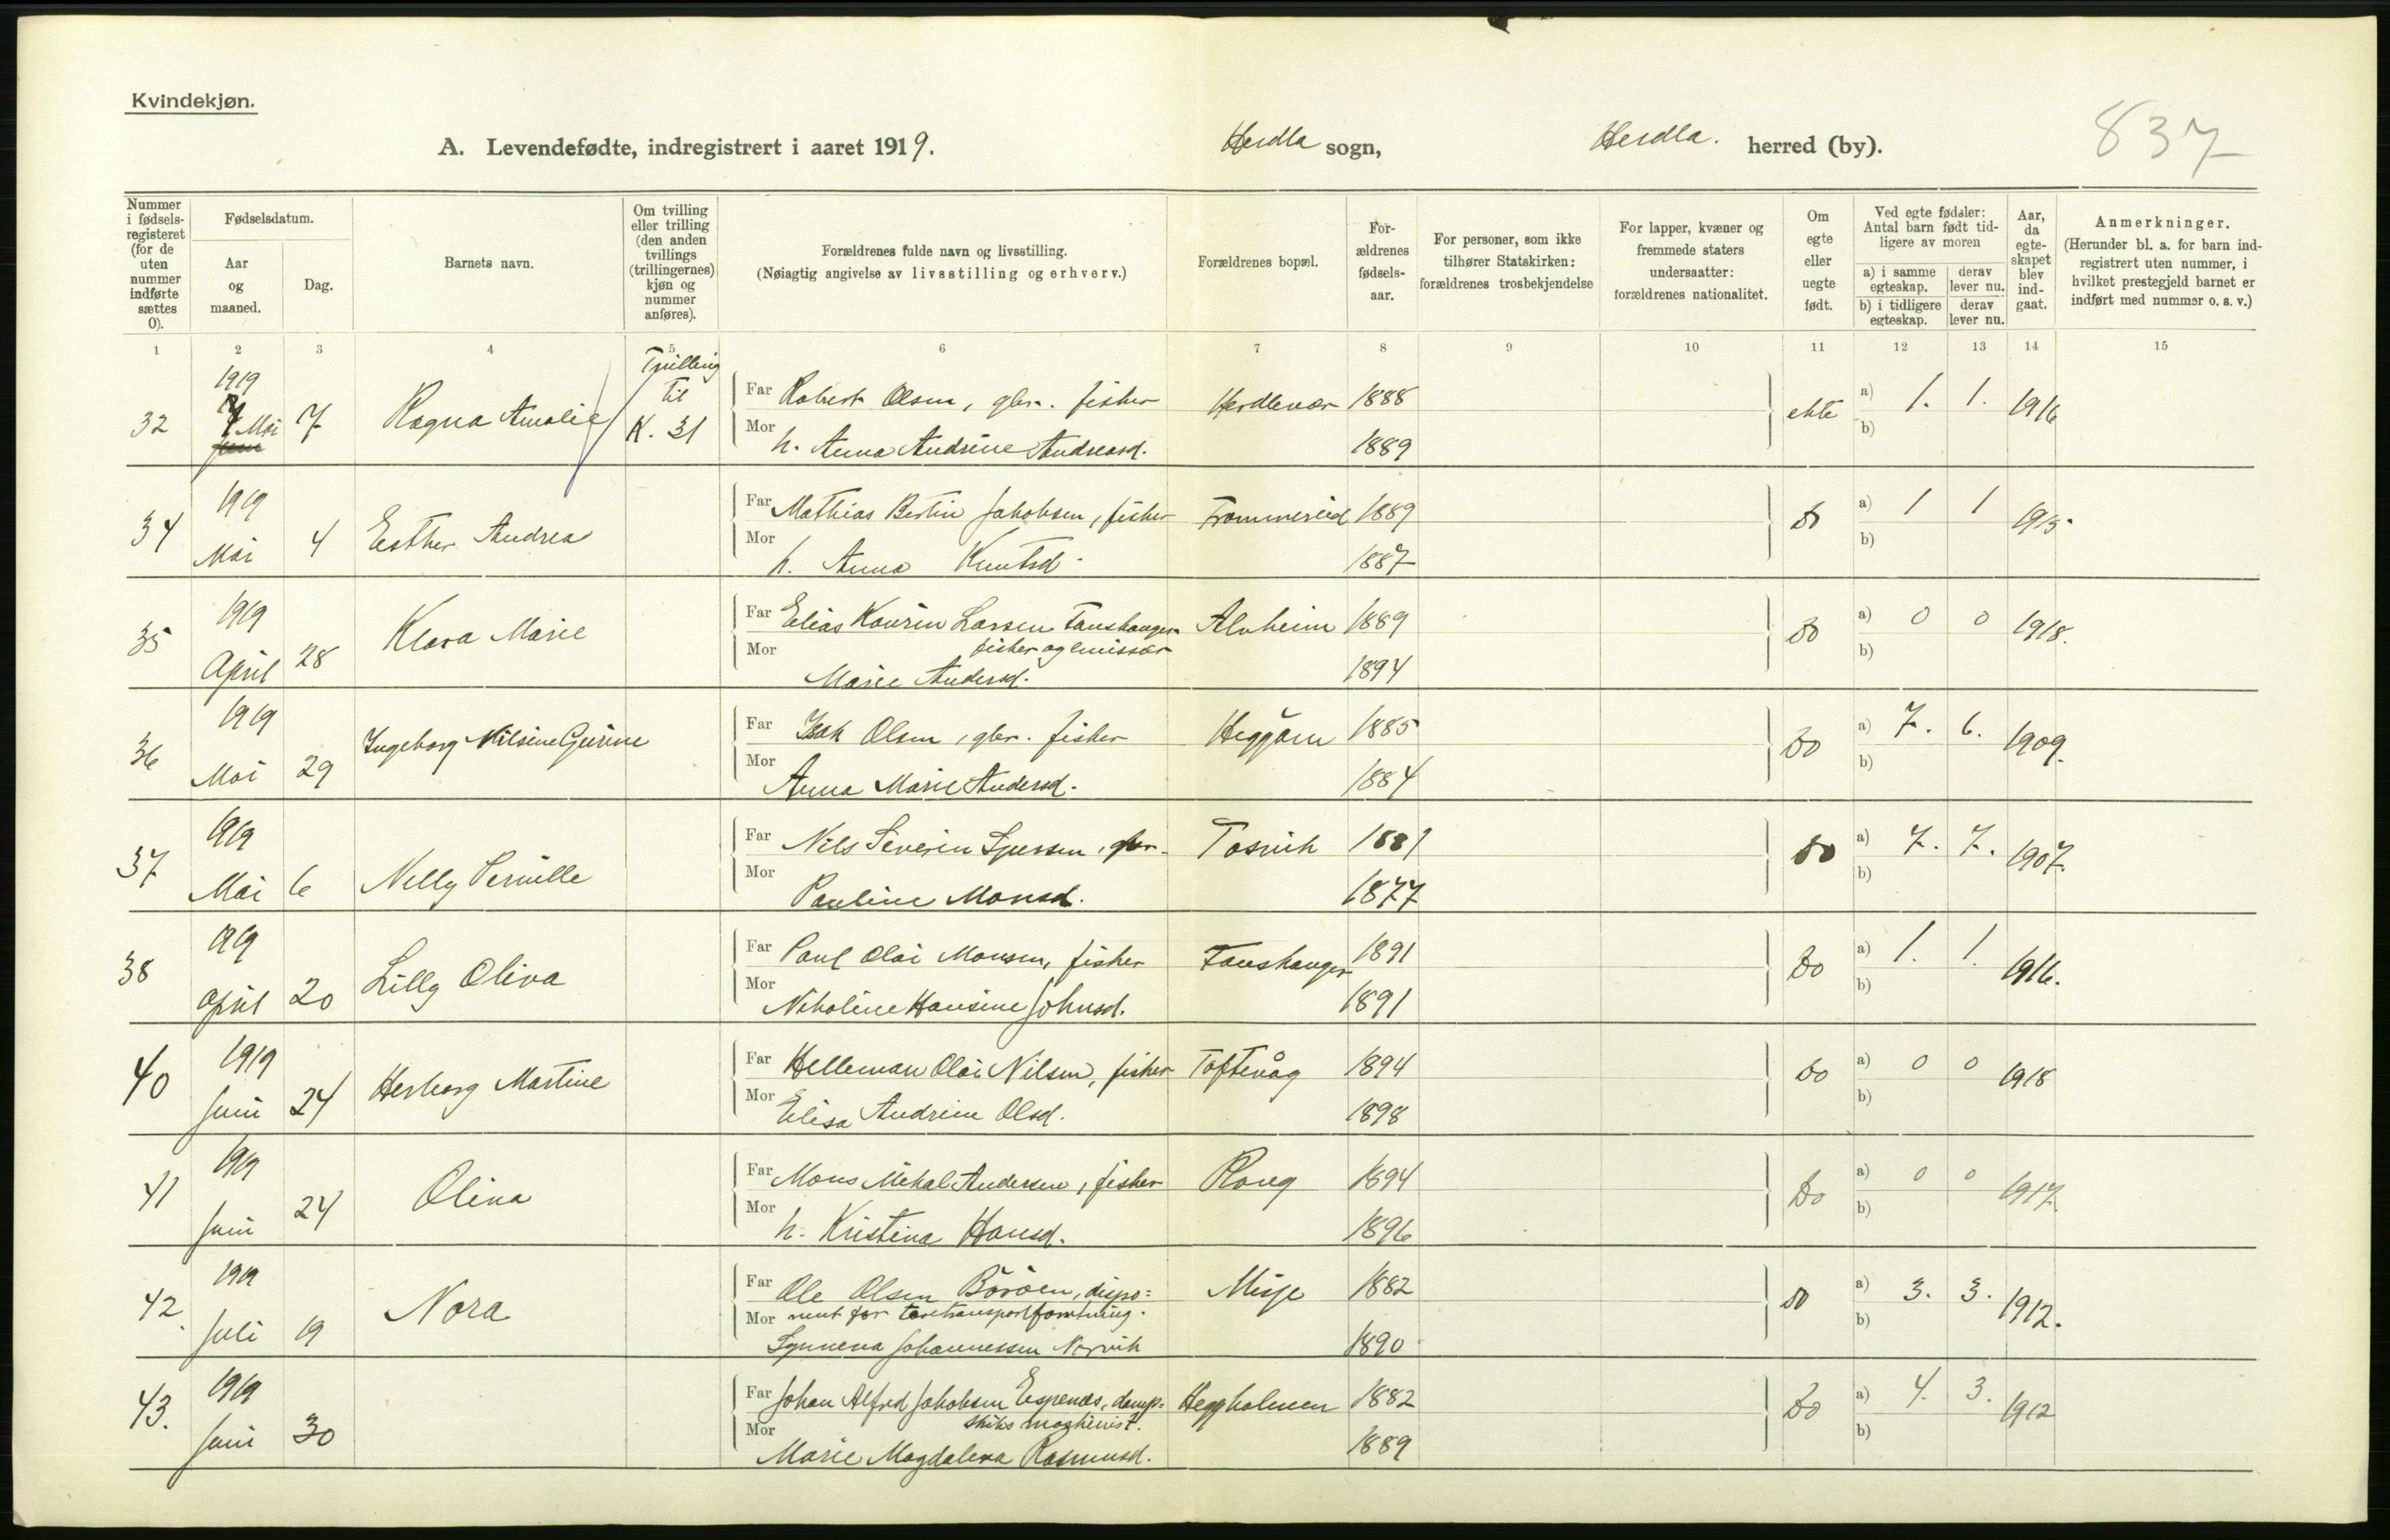 Kvindekjøn.
A. Levendefødte, indregistrert i aaret 1919.
Herdla sogn, Herdla. herred (by).
837
Nummer i fødselsregisteret (for de uten nummer indførte sættes 0).
Fødselsdatum.
Aar og maaned.
Dag.
Barnets navn.
Om tvilling eller trilling (den anden tvillings (trillingernes) kjøn og nummer anføres).
Forældrenes fulde navn og livsstilling.
(Nøiagtig angivelse av livsstilling og erhverv.)
Forældrenes bopæl.
Forældrenes fødselsaar.
For personer, som ikke tilhører Statskirken: forældrenes trosbekjendelse
For lapper, kvæner og fremmede staters undersaatter: forældrenes nationalitet.
Om egte eller uegte født.
Ved egte fødsler: Antal barn født tidligere av moren
a) i samme egteskap. derav lever nu.
b) i tidligere egteskap. derav lever nu.
Aar, da egteskapet blev indgaat.
Anmerkninger.
(Herunder bl. a. for barn indregistrert uten nummer, i hvilket prestegjeld barnet er indført med nummer o. s. v.)
1 2 3 4 5 6 7 8 9 10 11 12 13 14 15
32 1919 Mai 7 Ragna Amalie Tvilling til K. 31
Far Robert Olsen, gbr. fisher Herdlevær 1888 ekte a) 1. 1. 1916
Mor h. Anna Andrine Andreasd. 1889 b)
34 1919 Mai 4 Esther Andrea
Far Mathias Bertin Jakobsen, fisher Frommereid 1889 Do a) 1 1 1915
Mor h. Anna Knutsd. 1887 b)
35 1919 April 28 Klara Marie
Far Elias Kaurin Larsen Fauskanger Alvheim 1889 Do a) 0 0 1918.
fisher og emissær
Mor Marie Andersd. 1894 b)
36 1919 Mai 29 Ingeborg Nilsine Gurine
Far Isak Olsen, gbr. fisher Heggöen 1885 Do a) 7. 6. 1909.
Mor Anna Marie Andersd. 1884 b)
37 1919 Mai 6 Nelly Pernille
Far Nils Severin Syversen, gbr. Tosvik 1881 Do a) 7. 7. 1907.
Mor Pauline Monsd. 1877 b)
38 1919 April 20 Lilly Oliva
Far Paul Olai Monsen, fisher Fauskanger 1891 Do a) 1. 1. 1916.
Mor Nikoline Hansine Johnsd. 1891 b)
40 1919 Juni 24 Herborg Martine
Far Helleman Olai Nilsen, fisher Toftevåg 1894 Do a) 0 0 1918
Mor Elisa Andrine Olsd. 1898 b)
41 1919 Juni 24 Olina
Far Mons Mikal Andersen, fisher Rong 1894 Do a) 0 0 1917.
Mor h. Kristina Hansd. 1896 b)
42. 1919 Juli 19 Nora
Far Ole Olsen Böröen, dispo= Misje 1882 Do a) 3. 3. 1912.
nent for
Mor Synneva Johannessen Norvik 1890 b)
43. 1919 Juni 30
Far Johan Alfred Jakobsen Espenes, damp= Heggholmen 1882 Do a) 4. 3. 1912
skibs maskinist.
Mor Marie Magdalena Rasmusd. 1889 b)